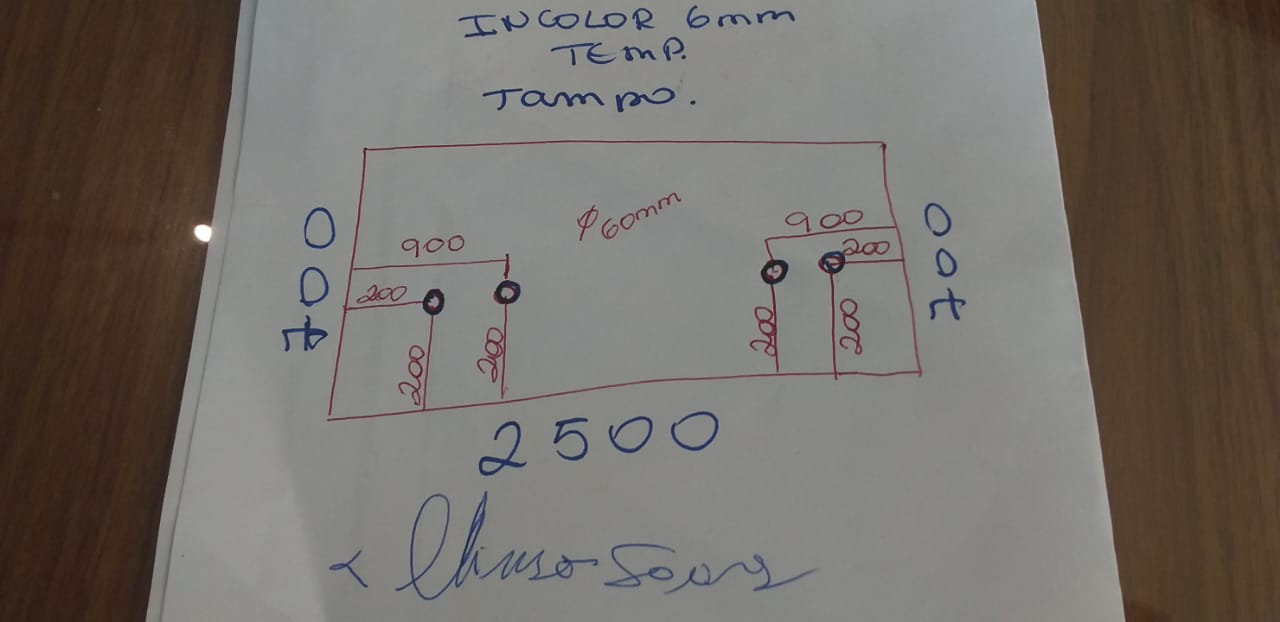 INCOLOR 6mm
TEMP.
Tampo.
700
900
200
200
200
φ60mm
900
200
200
200
700
2500